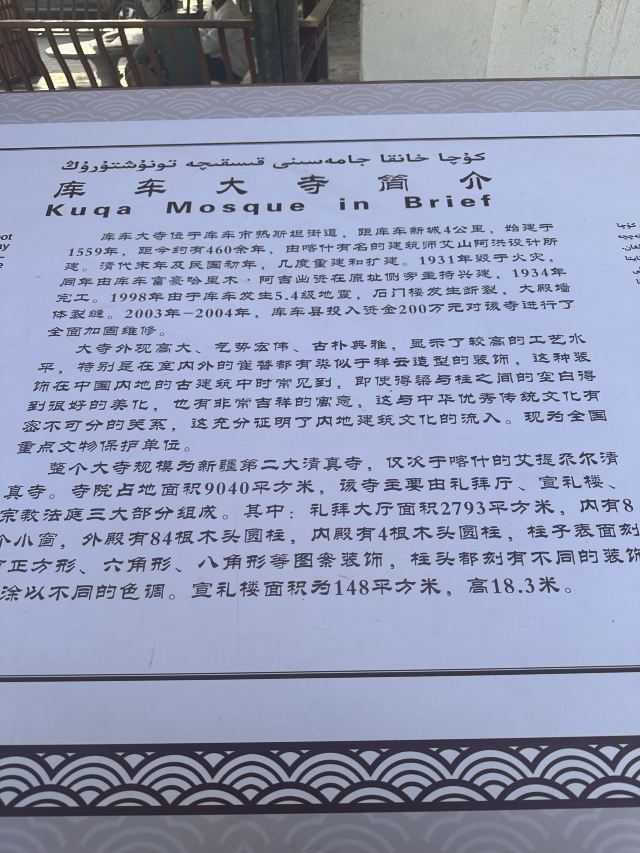 كۇچا خانىقا جامەسىنى قىسقىچە تونۇشتۇرۇش
库车大寺简介
Kuqa Mosque in Brief
库车大寺位于库车市热斯坦街道，距库车新城4公里，始建于
1559年，距今约有460余年，由喀什有名的建筑师艾山阿洪设计所
建。清代末年及民国初年，几度重建和扩建。1931年毁于火灾，
同年由库车富豪哈里木·阿吉出资在原址侧旁主持兴建，1934年
完工。1998年由于库车发生5.4级地震，石门楼发生断裂，大殿墙
体裂缝。2003年-2004年，库车县投入资金200万元对该寺进行了
全面加固维修。
大寺外观高大、气势宏伟、古朴典雅，显示了较高的工艺水
平，特别是在室内外的雀替都有类似于祥云造型的装饰，这种装
饰在中国内地的古建筑中时常见到，即使得梁与柱之间的空白得
到很好的美化，也有非常吉祥的寓意，这与中华优秀传统文化有
密不可分的关系，这充分证明了内地建筑文化的流入。现为全国
重点文物保护单位。
整个大寺规模为新疆第二大清真寺，仅次于喀什的艾提尕尔清
真寺。寺院占地面积9040平方米，该寺主要由礼拜厅、宣礼楼、
宗教法庭三大部分组成。其中：礼拜大厅面积2793平方米，内有8
个小窗，外殿有84根木头圆柱，内殿有4根木头圆柱，柱子表面刻
正方形、六角形、八角形等图案装饰，柱头都刻有不同的装饰
涂以不同的色调。宣礼楼面积为148平方米，高18.3米。